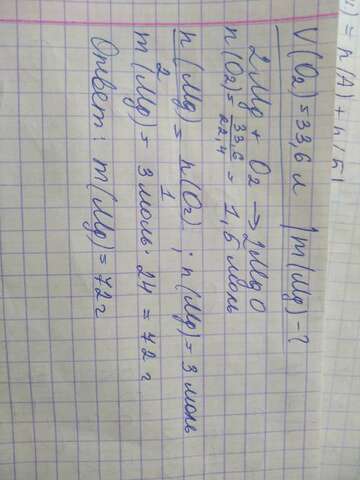 ) = n(A) + n(B)
V(O₂) = 33,6 л | m(Mg) - ?
2Mg + O₂ → 2MgO
n(O₂) = 33,6 / 22,4 = 1,5 моль
n(Mg) / 2 = n(O₂) / 1 ; n(Mg) = 3 моль
m(Mg) = 3 моль · 24 = 72 г
Ответ: m(Mg) = 72 г